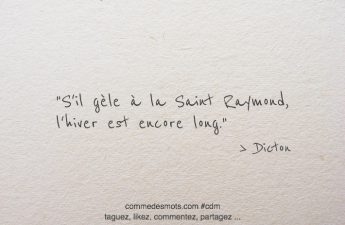 "S'il gèle à la Saint Raymond,
l'hiver est encore long."
> Dicton
commedesmots.com #cdm
taguez, likez, commentez, partagez ...